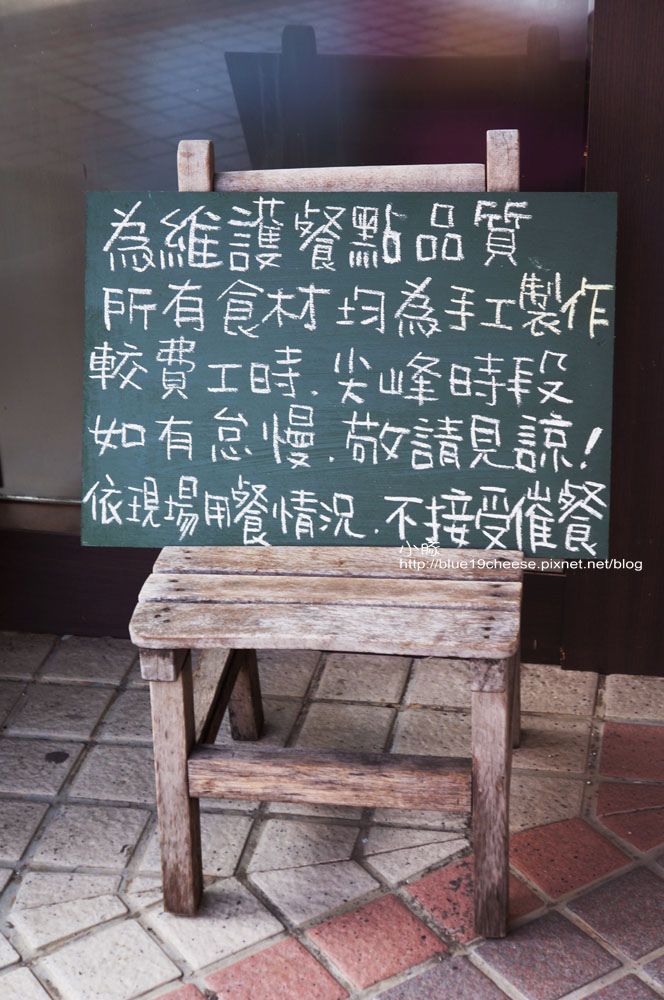 為維護餐點品質
所有食材均為手工製作
較費工時.尖峰時段
如有怠慢.敬請見諒!
依現場用餐情況.不接受催餐
小豚
http://blue19cheese.pixnet.net/blog